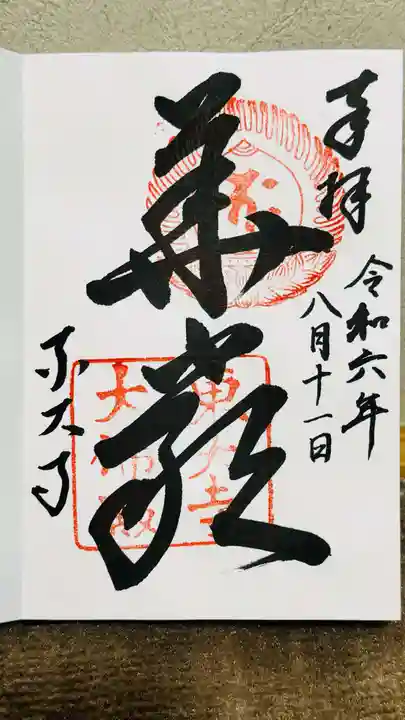 奉拝
令和六年
八月十一日
華嚴
東大寺
大佛殿
東大寺